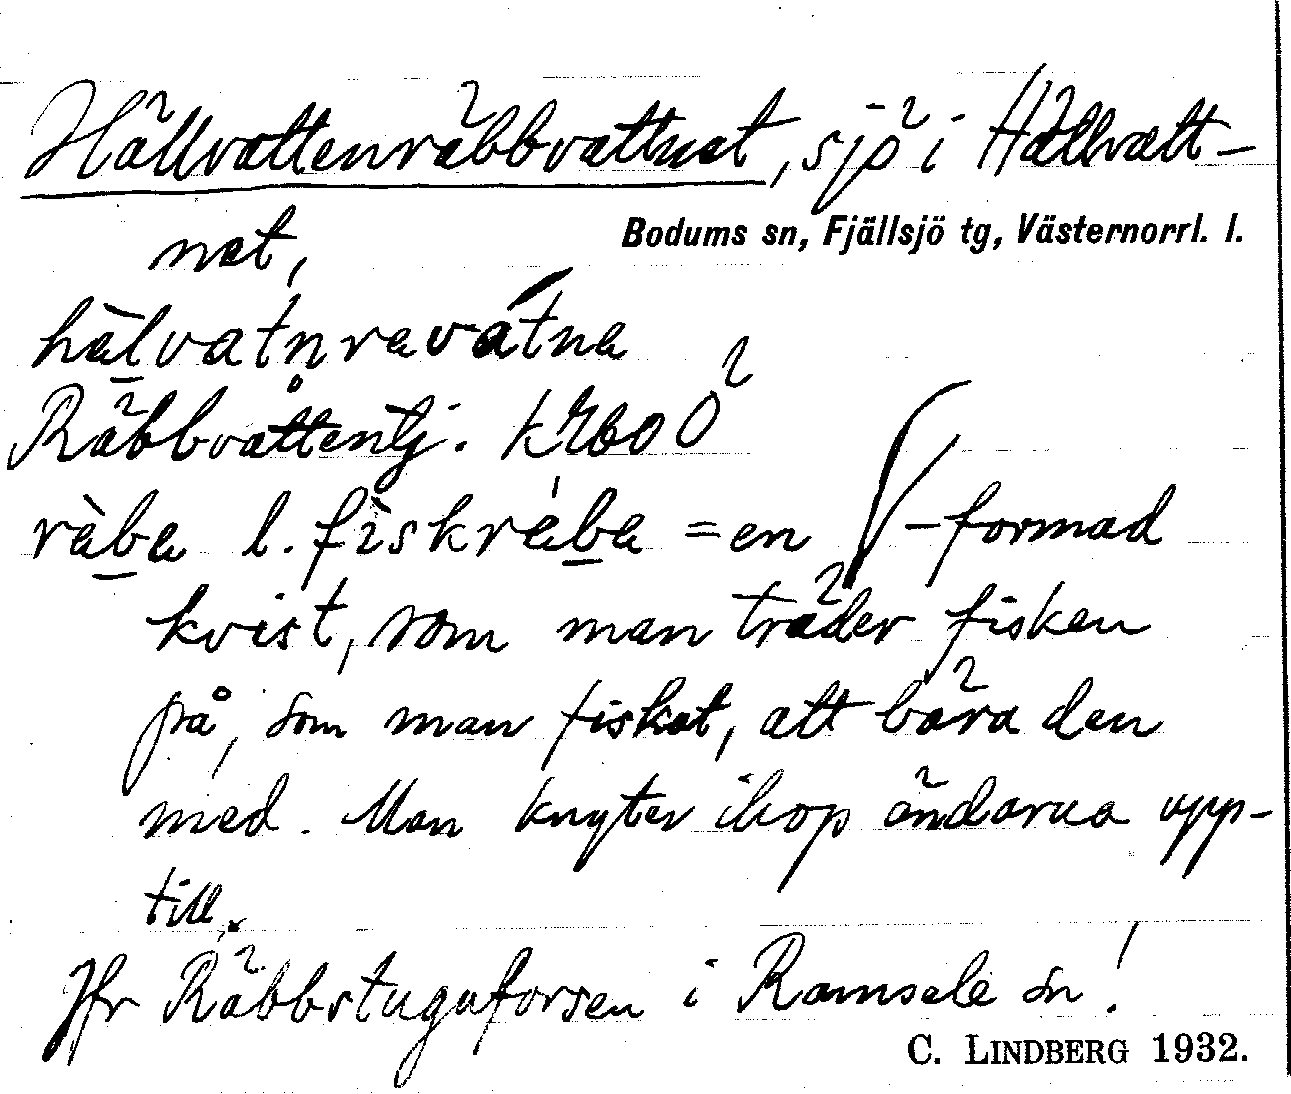 Hällvattenräbbvattnet, sjö i Hällvatt-
net,
Bodums sn, Fjällsjö tg, Västernorrl. l.
hälvatn̥ravátna
Räbbvattentj.
ràba l. fìskrába = en -formad
kvist, som man träder fisken
på, som man fiskat, att bära den
med. Man knyter ihop ändarna upp-
till.
Jfr Räbbstuguforsen i Ramsele sn!
C. LINDBERG 1932.